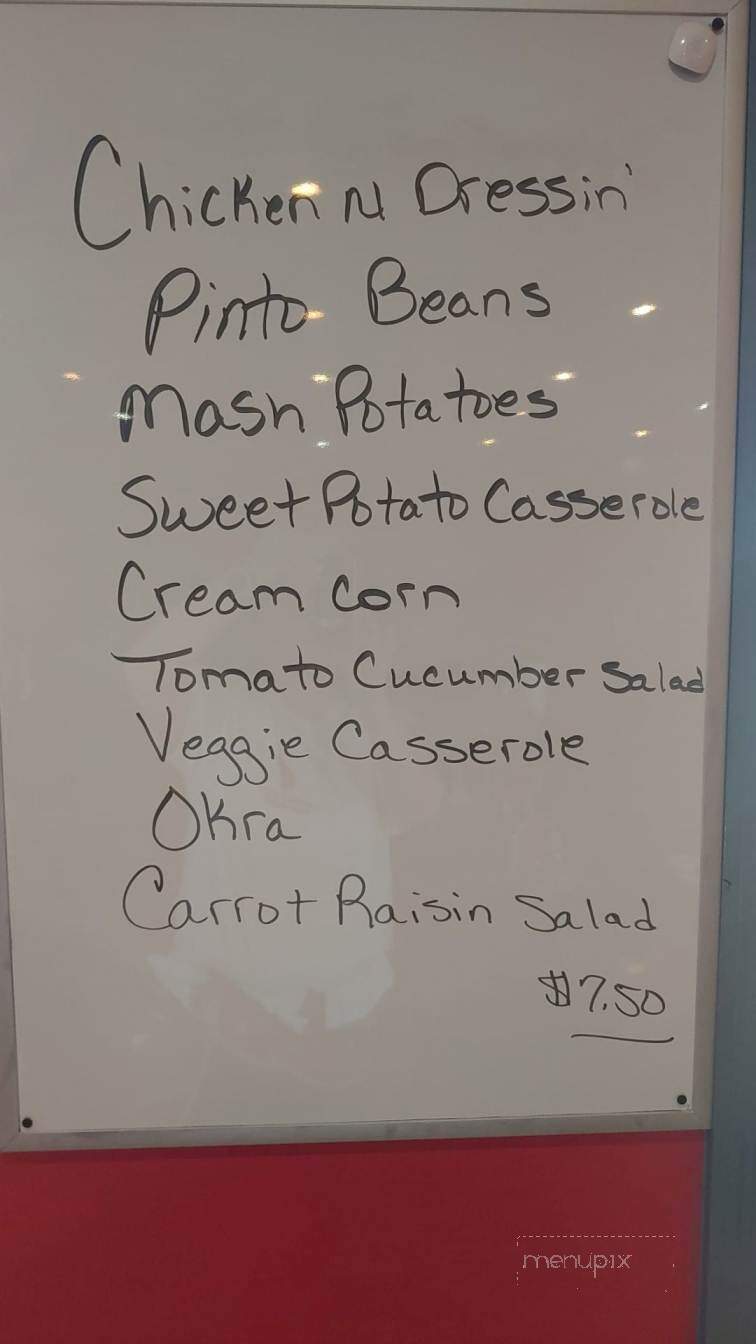 Chicken N Dressin'
Pinto Beans
Mash Potatoes
Sweet Potato Casserole
Cream Corn
Tomato Cucumber Salad
Veggie Casserole
Okra
Carrot Raisin Salad
$7.50
menupix